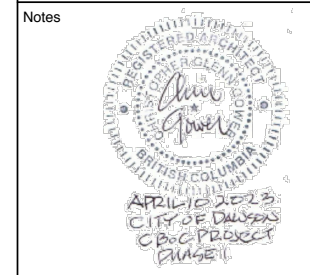 Notes
REGISTERED ARCHITECT
CHRISTOPHER GLENN GOWER
Chris
Gower
BRITISH COLUMBIA
APRIL 10 2023
CITY OF DAWSON
CBOC PROJECT
PHASE 1